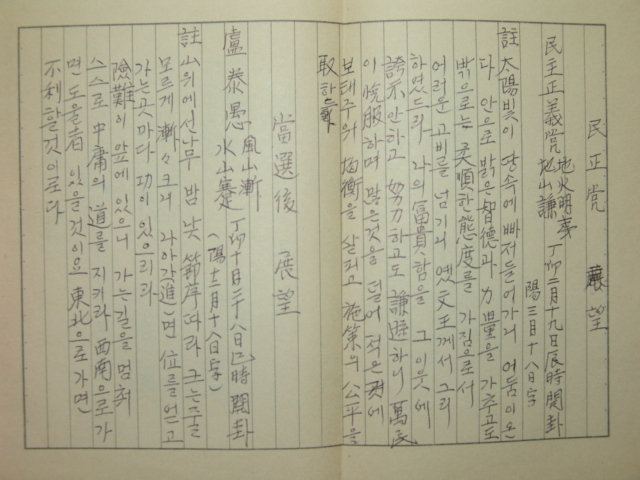 民正党 展望
民主正義党 地火明夷 地山謙 丁卯二月十九日辰時開卦
陽三月十八日字
註 太陽빛이 땅속에 빠저들어가니 어둠이 온
다 안으로 밝은 智德과 力量을 가추고도
밖으로는 柔順한 態度를 가짐으로서
어려운 고비를 넘기니 옛 文王께서 그리
하였드라 나의 富貴함을 그 이웃에
誇示안하고 努力하고도 謙遜하니 萬民
이 悦服하며 많은것을 덜어 적은편에
보태주와 均衡을 살피고 施策의 公平을
取하돗
當選後 展望
盧泰愚 風山漸 水山蹇 丁卯十月二十八日巳時開卦
(陽十二月十八日字)
註 山위에선나무 밤낮 節序따라 크는줄
모르게 漸々크니 나아가(進)면 位를 얻고
가는곳마다 功이 있으리라
險難이 앞에 있으니 가는길을 멈춰
스스로 中庸의 道를 지키라 西南으로가
면 도울者 있을것이요 東北으로 가면
不利할것이로다